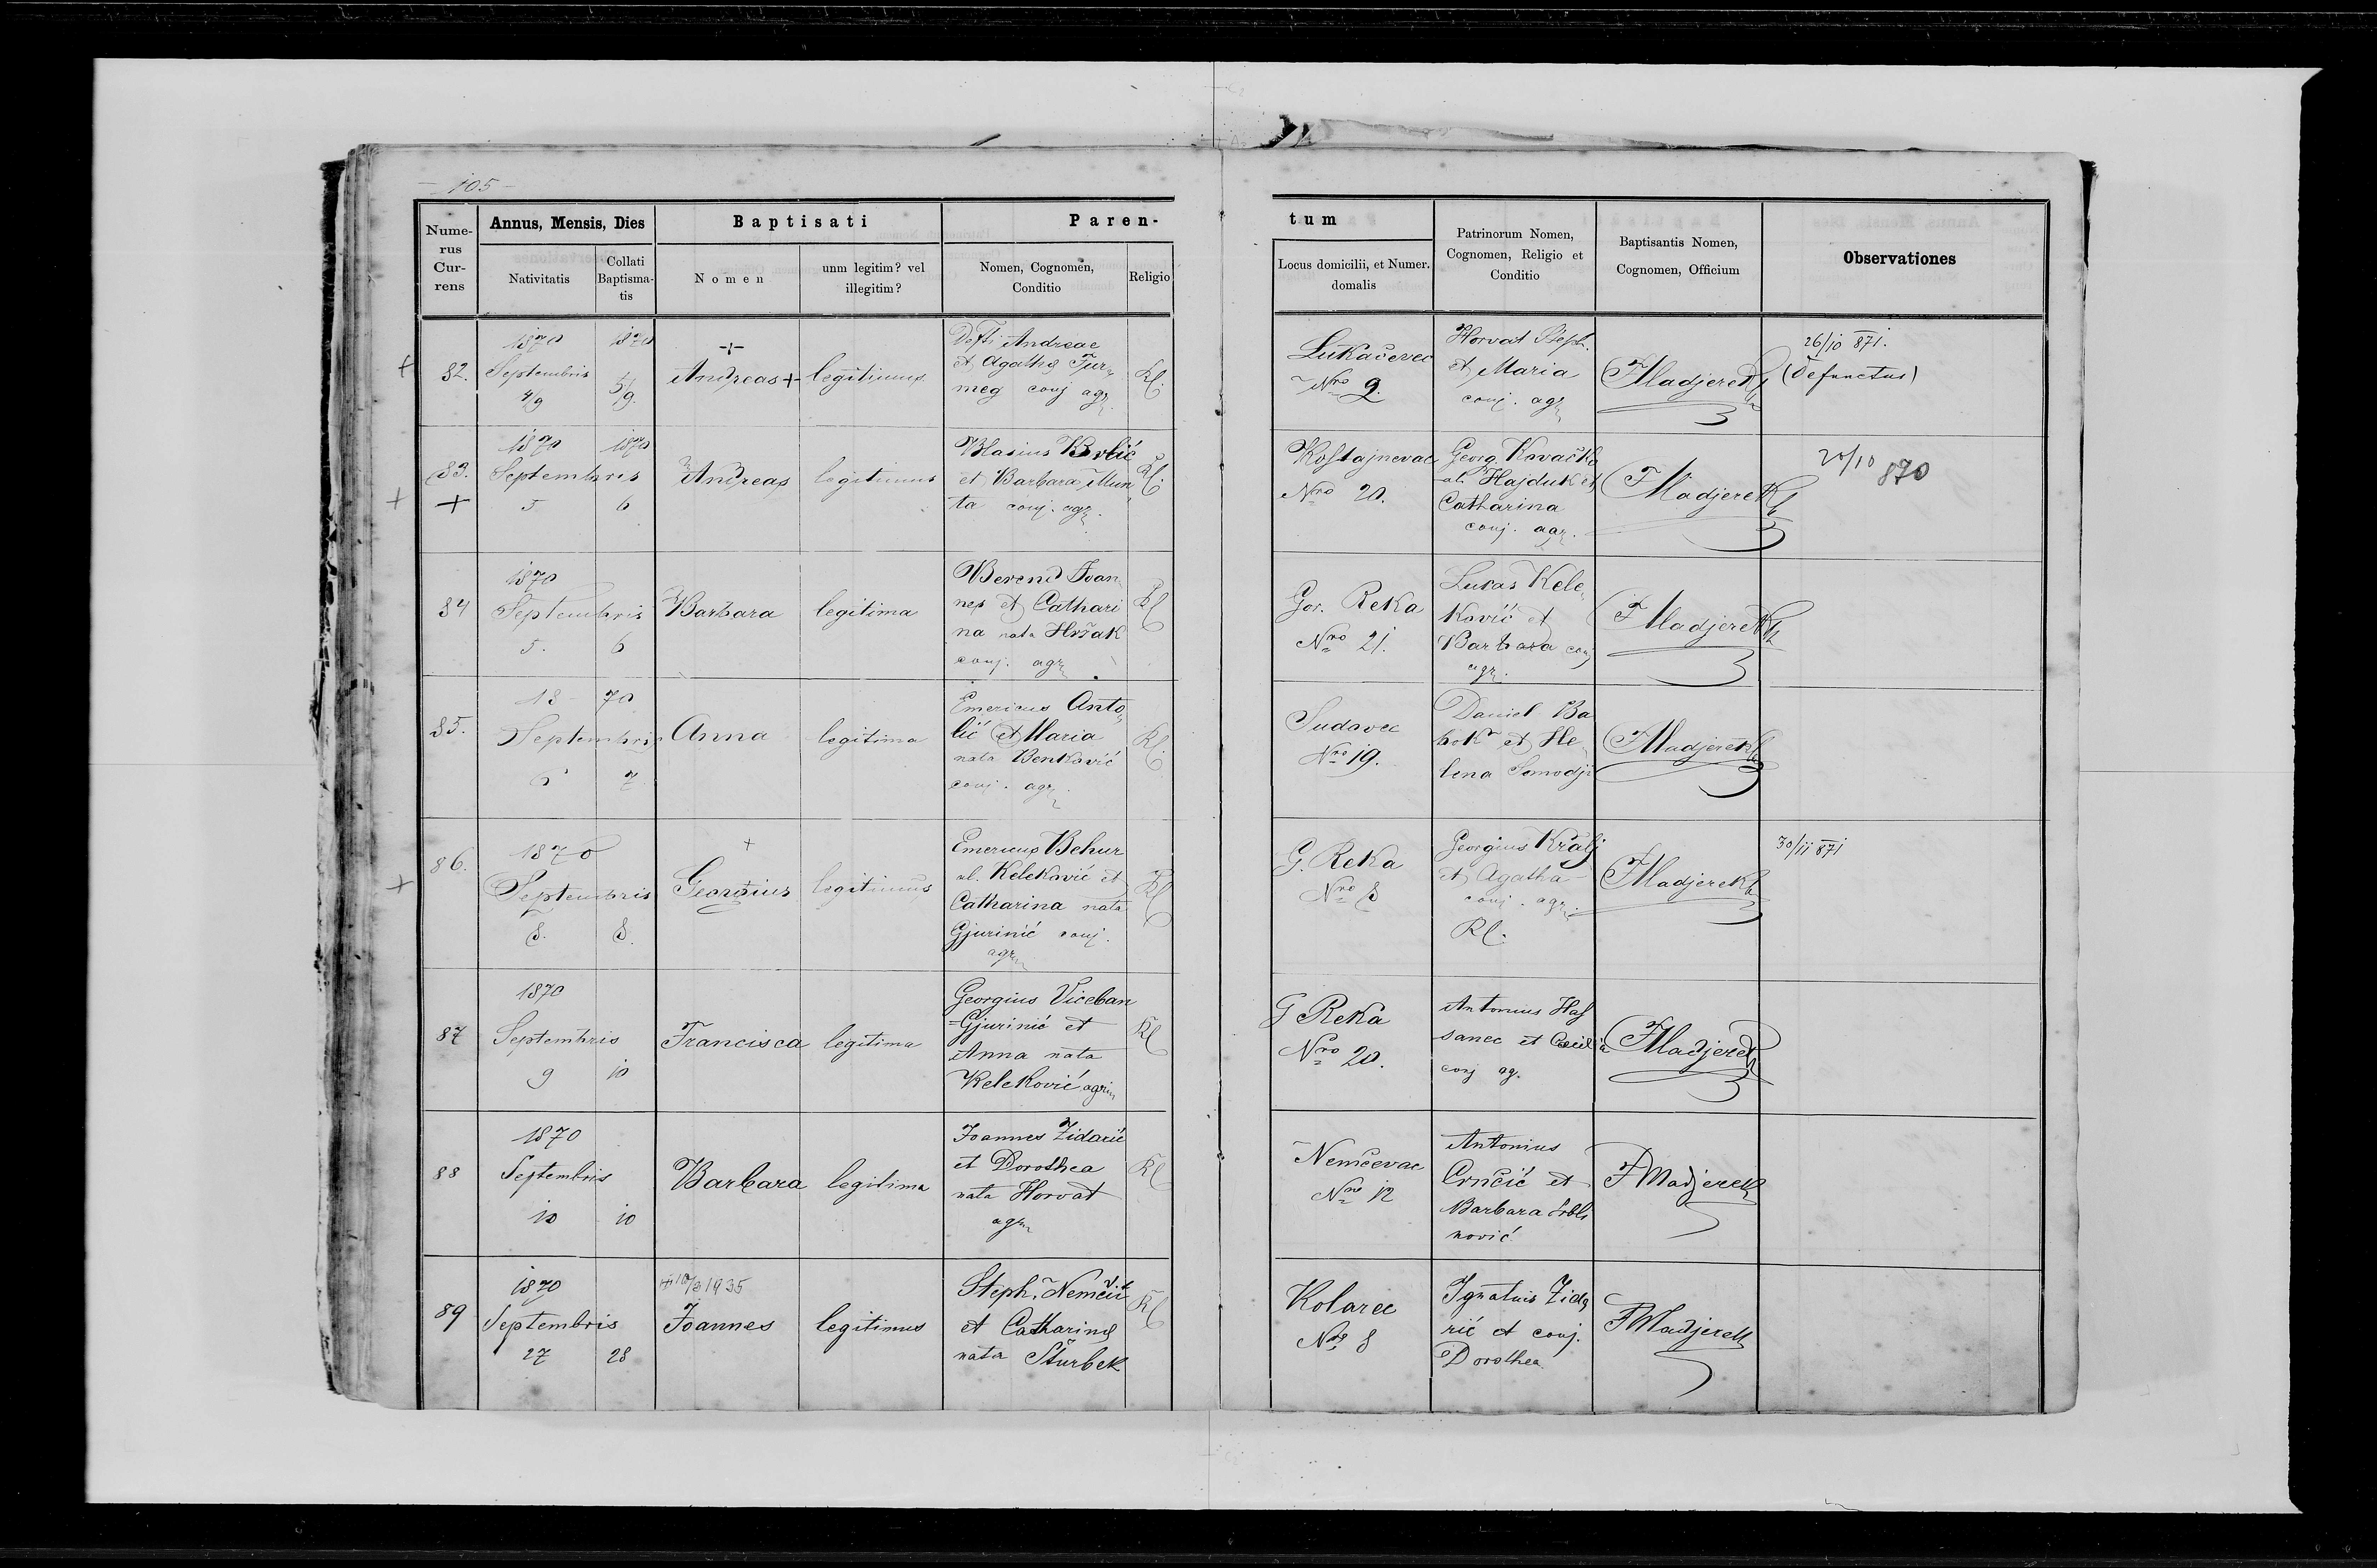 105
Nume-
rus
Cur-
rens
Annus, Mensis, Dies
Nativitatis
Collati
Baptisma-
tis
Baptisati
Nomen
unm legitim? vel
illegitim?
Paren-
Nomen, Cognomen,
Conditio
Religio
tum
Locus domicilii, et Numer.
domalis
Patrinorum Nomen,
Cognomen, Religio et
Conditio
Baptisantis Nomen,
Cognomen, Officium
Observationes
+ 82.
1870 1870
Septembris
4/9 5/9.
+
Andreas +
legitimus
Defti Andreae
et Agatha Fur„
meg conj agr
Rl.
Lukačevec
Nro 9.
Horvat Steph.
et Maria
conj. agr
FMadjerek
26/10 871.
(Defunctus)
83.
+ +
1870 1870
Septembris
5 6
Andreas
legitimus
Blasius Brlić
et Barbara Mun„
ta conj. agr.
Rl.
Kostajnevac
Nro 20.
Georg Kovačić
al. Hajduk et
Catharina
conj. agr.
FMadjerek
20/10 870
84
1870
Septembris
5. 6
Barbara
legitima
Berend Joan
nes et Cathari
na nata Hržak
conj. agr
Rl
Gor. Reka
Nro 21.
Lucas Kele„
ković et
Barbara conj
agr.
FMadjerek
85.
18 70
Septembris
6 7
Anna
legitima
Emericus Anto„
lić et Maria
nata Benković
conj. agr.
Rl.
Sudovec
Nro 19.
Daniel Ba
bok et He„
lena Somodji
FMadjerek
86.
+
1870
Septembris
8. 8.
+
Georgius
legitimus
Emericus Behur
al. Keleković et
Catharina nata
Gjurinić conj.
agr
Rl
G. Reka
Nro 8
Georgius Kralj
et Agatha
conj. agr.
Rl.
FMadjerek
30/11 871
87
1870
Septembris
9 10
Francisca
legitima
Georgius Viceban
=Gjurinić et
Anna nata
Keleković agr
Rl
G Reka
Nro 20.
Antonius Has
sanec et Caecilia
conj ag.
FMadjerek
88
1870
Septembris
10 10
Barbara
legitima
Joannes Zidarić
et Dorothea
nata Horvat
agr
Rl
Nemčevac
Nro 12
Antonius
Crnčić et
Barbara
nović
FMadjerek
89
1870
Septembris
27 28
1935
Joannes
legitimus
Steph. Nemčić
et Catharina
nata Šturbek
Rl
Kolarec
Nro 8
Ignatius Zida
rić et conj.
Dorothea
FMadjerek